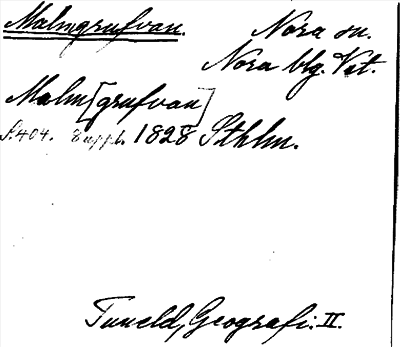 Malmgrufvan. Nora sn.
Nora blg. Vst.
Malm[grufvan]
S.404. 8 uppl. 1828 Sthlm.
Tuneld, Geografi. II.